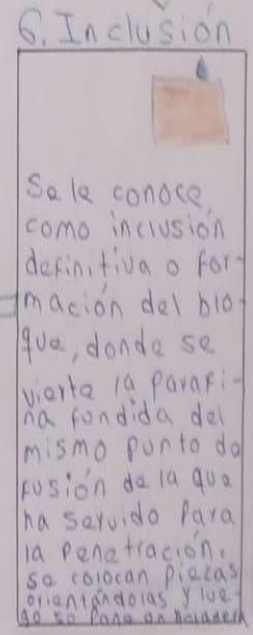 6. Inclusión
Se le conoce
como inclusión
definitiva o for-
mación del blo-
que, donde se
vierte la parafi-
na fundida del
mismo punto de
fusión de la que
ha servido para
la penetración.
se colocan piezas
orientándolas y lue-
go se pone en heladera